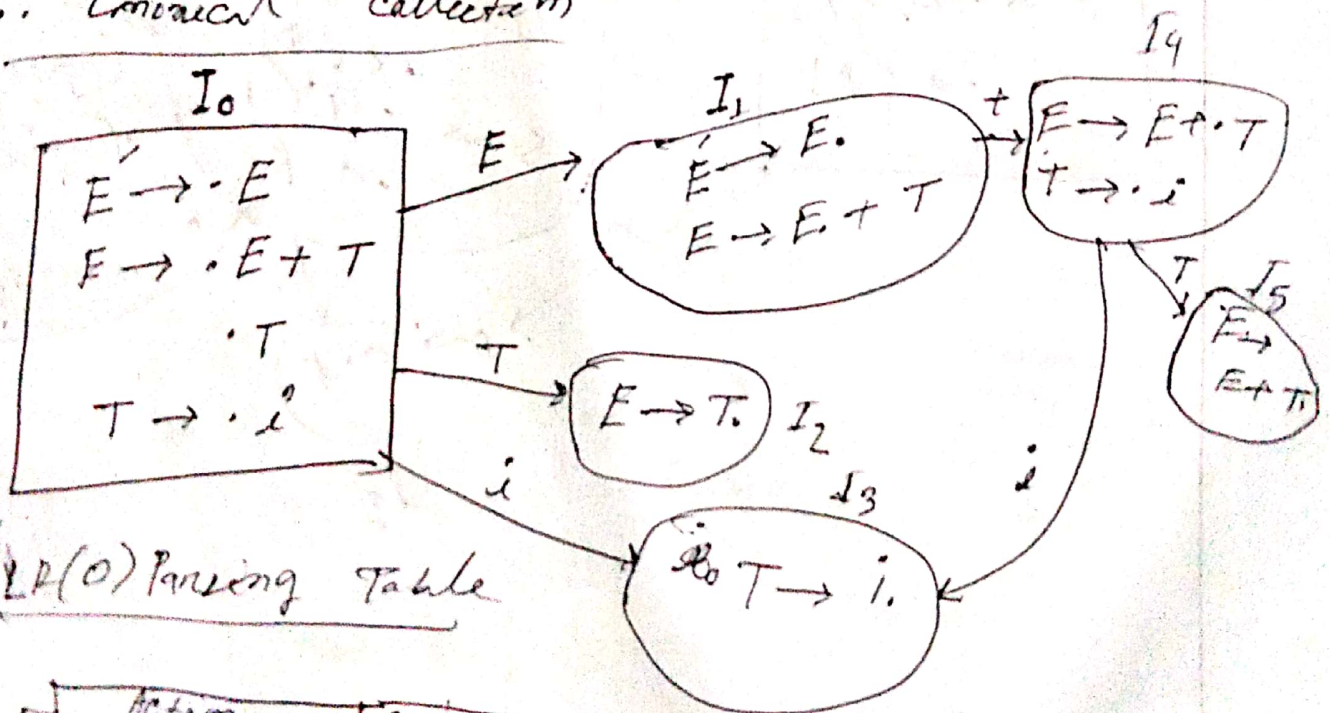 Canonical Collection
I₀
E′ → ·E
E → ·E + T
·T
T → ·i
E
T
i
I₁
E′ → E.
E → E. + T
+
I₄
E → E + · T
T → · i
T
i
I₅
E →
E + T.
E → T.
I₂
I₃
T → i.
LR(0) Parsing Table
Action